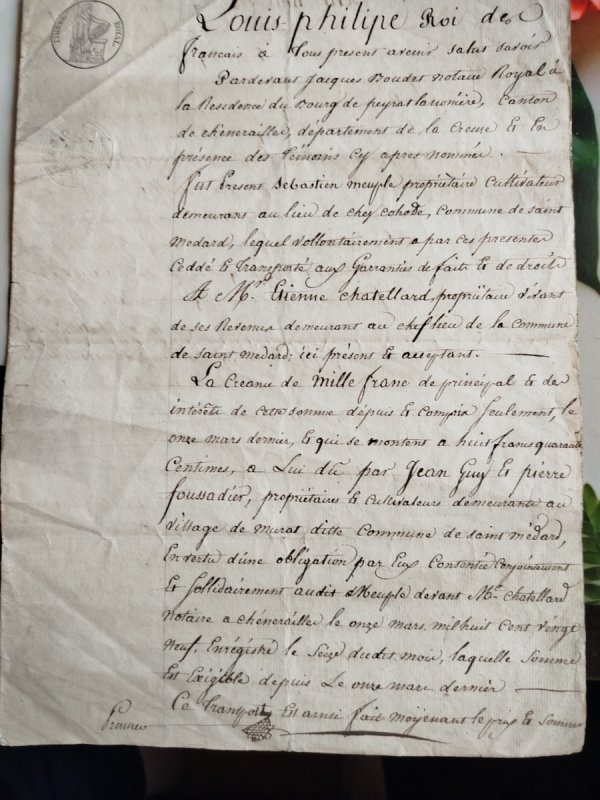 TIMBRE ROYAL
Louis-philipe Roi des
francais à tous present avenir salus savoir
Pardevant Jacques Boudet notaire Royal à
la Residence du Bourg de peyrat lanonière, Canton
de chénerailler, département de la Creuse & En
présence des temoins Cy apres nommés.
fut Present Sébastien meuple propriétaire Cultivateur
demeurant au lieu de chez cohode, commune de saint
medard, lequel vollontairement a par ces presente
Ceddé & Transporté aux Garranties de faite & de droite
A Mr. Etienne Chatellard, propriétaire vivant
de ses Revenus demeurant au chef lieu de la Commune
de saint medard; ici présent & acceptant.
La Creance de mille franc de principal & des
intérêts de cette somme depuis & compris seulement, le
onze mars dernier, & qui se montent a huit francs quarante
Centimes, a Lui dû par Jean Guy & pierre
foussadier, propriétaires & Cultivateurs demeurants au
village de murat ditte Commune de saint médard,
En vertu d'une obligation par Eux Consentie Conjointement
& Sollidairement audit Meuple devant Me. Chatellard
notaire a chénerailler le onze mars mil huit Cent vingt
neuf. Enrégistré le Seize dudit mois, laquelle Somme
Est Exigible depuis Le onze mars dernier
Ce Transport Est ainsi fait moiyenant le prix & somme
Premier